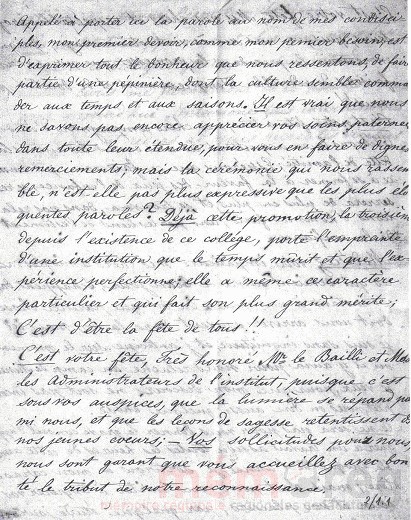 Appelé à porter ici la parole au nom de mes condisci
ples, mon premier devoir, comme mon premier besoin, est
d'exprimer tout le bonheur que nous ressentons, de fair
partie d'une pépinière, dont la culture semble comma
der aux temps et aux saisons. Il est vrai que nous
ne savons pas encore apprécier vos soins paternel
dans toute leur étendue, pour vous en faire de digne
remerciements; mais la cérémonie qui nous rassem
ble, n'est elle pas plus expressive que les plus élo
quentes paroles? Déjà cette promotion, la troisièm
depuis l'existence de ce collège, porte l'empreinte
d'une institution que le temps mûrit et que l'ex
périence perfectionne; elle a même ce caractère
particulier et qui fait son plus grand mérite;
C'est d'être la fête de tous!!
C'est votre fête, Très honoré Mr. le Bailli et Me
les Administrateurs de l'institut; puisque c'est
sous vos auspices, que la lumière se répand par
mi nous, et que les leçons de sagesse retentissent d
nos jeunes coeurs; — Vos sollicitudes pour nous
nous sont garant que vous accueillez avec bon
té le tribut de notre reconnaissance
2/11